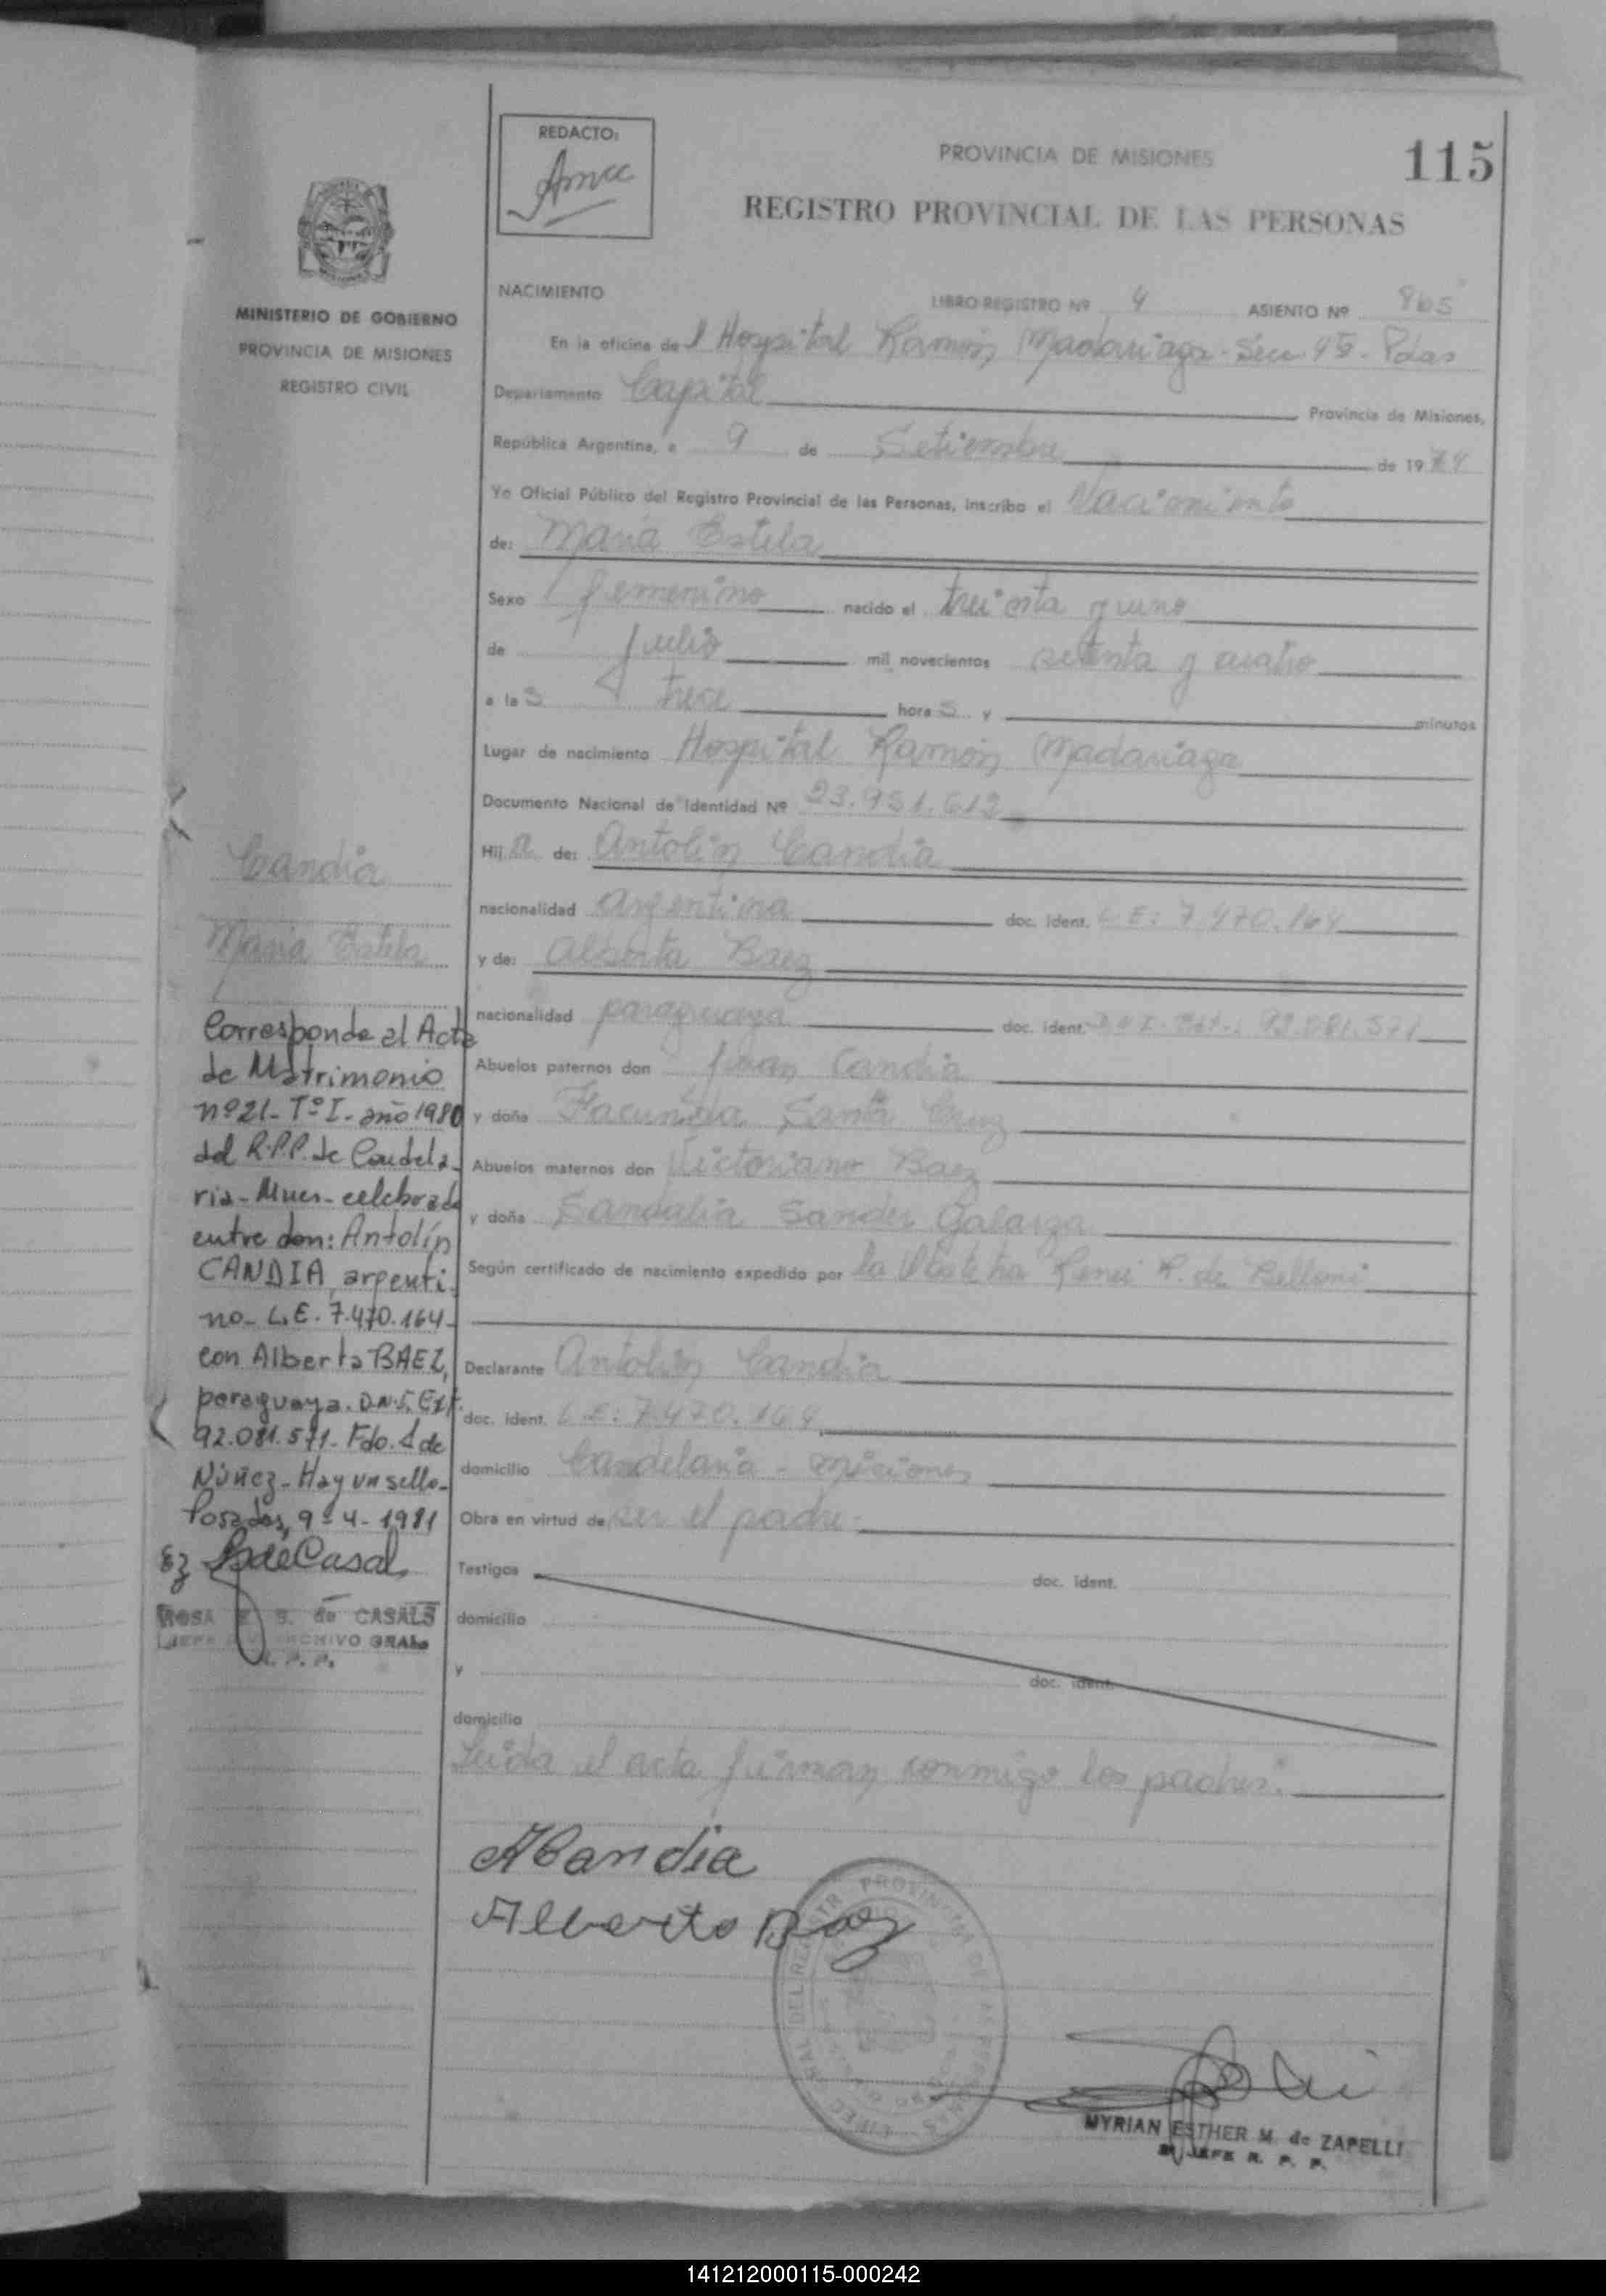 REDACTO:
PROVINCIA DE MISIONES
115
REGISTRO PROVINCIAL DE LAS PERSONAS
MINISTERIO DE GOBIERNO
PROVINCIA DE MISIONES
REGISTRO CIVIL
NACIMIENTO
LIBRO REGISTRO Nº 4 ASIENTO Nº 865
En la oficina del Hospital Ramón Madariaga - Secc 4ta - Pdas
Departamento Capital Provincia de Misiones,
República Argentina, a 9 de Setiembre de 1974
Yo Oficial Público del Registro Provincial de las Personas, inscribo el Nacimiento
de: María Estela
Sexo femenino nacido el treinta y uno
de julio mil novecientos setenta y cuatro
a las trece horas y minutos
Lugar de nacimiento Hospital Ramón Madariaga
Documento Nacional de Identidad Nº 23.951.612
Hija de: Antolín Candia
nacionalidad argentina doc. ident. L E: 7.470.164
y de: Alberta Baez
nacionalidad paraguaya doc. ident. 92.081.571
Abuelos paternos don Juan Candia
y doña Facunda Santa Cruz
Abuelos maternos don Victoriano Baez
y doña Sandalia Sander Galarza
Según certificado de nacimiento expedido por la Obstetra R. de Belloni
Declarante Antolín Candia
doc. ident. L.E: 7.470.164
domicilio Candelaria - Misiones
Obra en virtud de ser el padre.
Testigos doc. ident.
domicilio
y doc. ident.
domicilio
Leída el acta firman conmigo los padres.
Candia
María Estela
Corresponde al Acta
de Matrimonio
nº 21- Tº I- año 1980
del R.P.P. de Candela-
ria- Mnes- celebrada
entre don: Antolín
CANDIA, argenti-
no- L.E. 7.470.164-
con Alberta BAEZ,
paraguaya. D.N.I. Ext.
92.081.571- Fdo. A de
Núñez- Hay un sello-
Posadas, 9-4-1981
deCasal
ROSA E S. de CASALS
JEFE DIV ARCHIVO GRAL.
R. P. P.
ACandia
Alberta Baez
MYRIAN ESTHER M. de ZAPELLI
JEFE R. P. P.
141212000115-000242